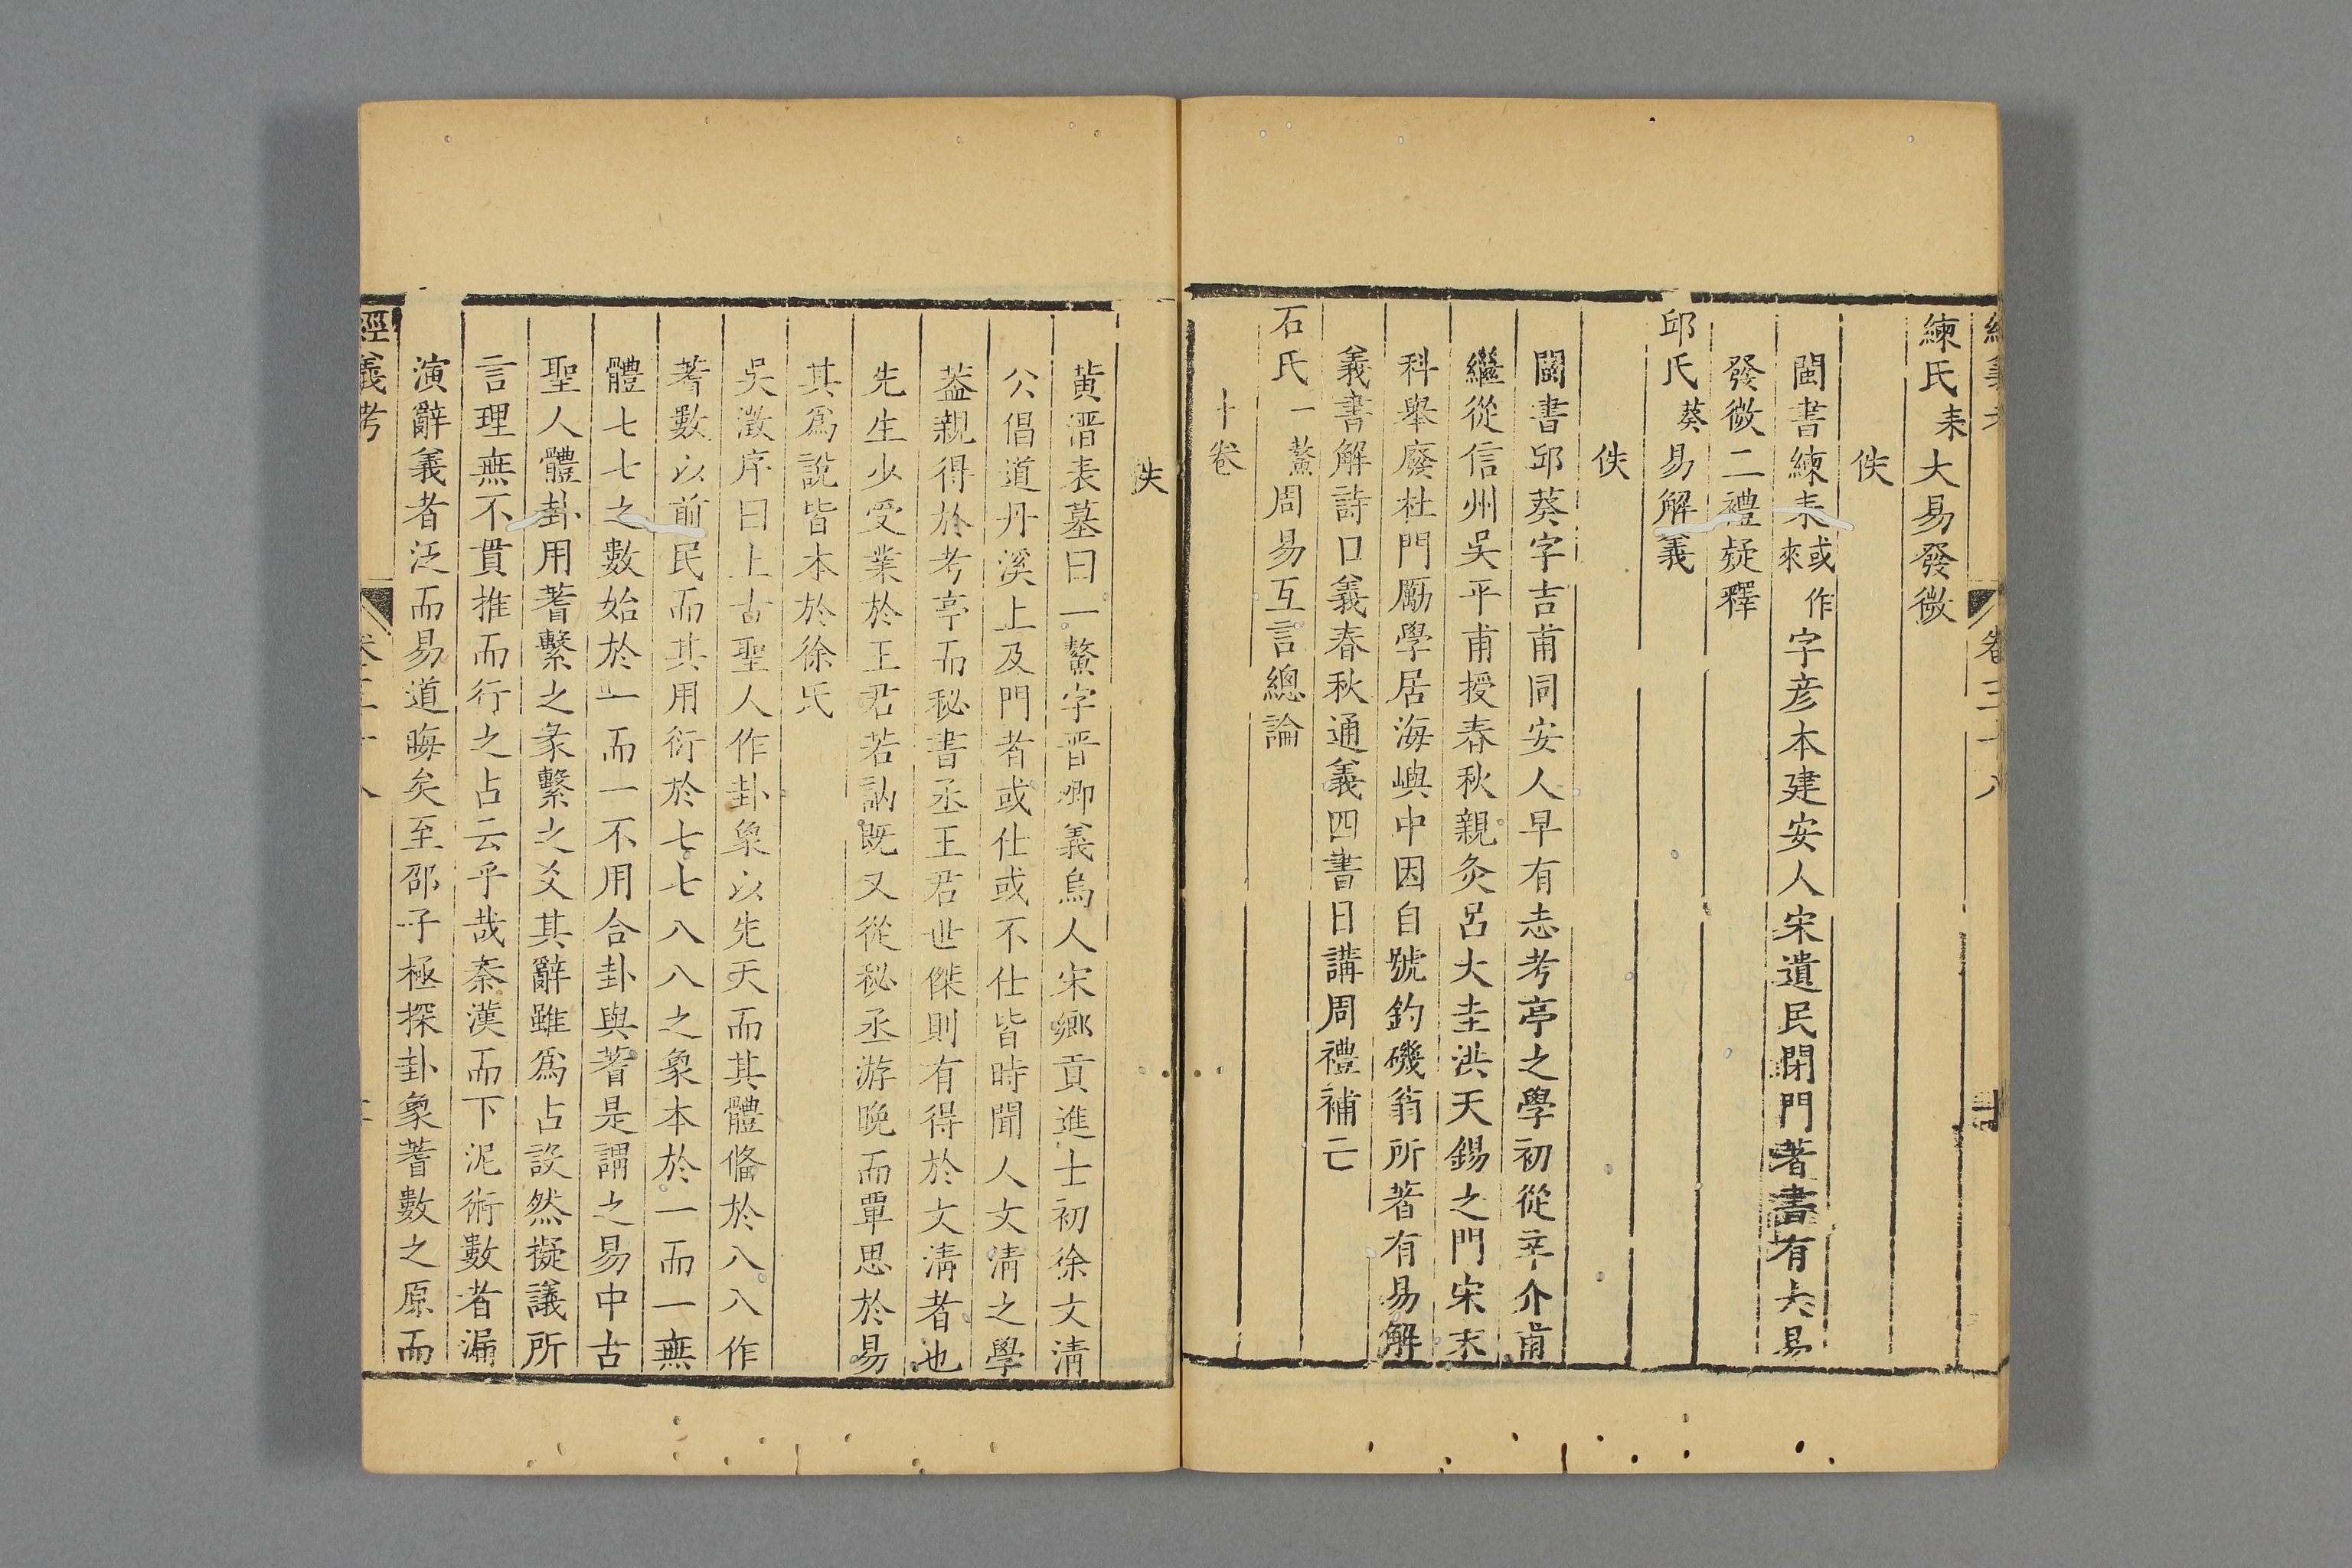 經義考 卷三十八
練氏耒大易發微
佚
閩書練耒或作來字彦本建安人宋遺民閉門著書有大易
發微二禮疑釋
邱氏葵易解義
佚
閩書邱葵字吉甫同安人早有志考亭之學初從辛介甫
繼從信州吳平甫授春秋親灸呂大圭洪天錫之門宋末
科舉廢杜門勵學居海嶼中因自號釣磯翁所著有易解
義書解詩口義春秋通義四書日講周禮補亡
石氏一鰲周易互言總論
十卷
佚
黃溍表墓曰一鰲字晋卿義烏人宋鄉貢進士初徐文清
公倡道丹溪上及門者或仕或不仕皆時聞人文清之學
葢親得於考亭而秘書丞王君世傑則有得於文清者也
先生少受業於王君若訥既又從秘丞游晩而覃思於易
其爲說皆本於徐氏
吳澂序曰上古聖人作卦象以先天而其體備於八八作
蓍數以前民而其用衍於七七八八之象本於一而一無
體七七之數始於一而一不用合卦與蓍是謂之易中古
聖人體卦用蓍繫之彖繫之爻其辭雖爲占設然擬議所
言理無不貫推而行之占云乎哉秦漢而下泥術數者漏
演辭義者泛而易道晦矣至邵子極探卦象蓍數之原而
經義考 卷三十八